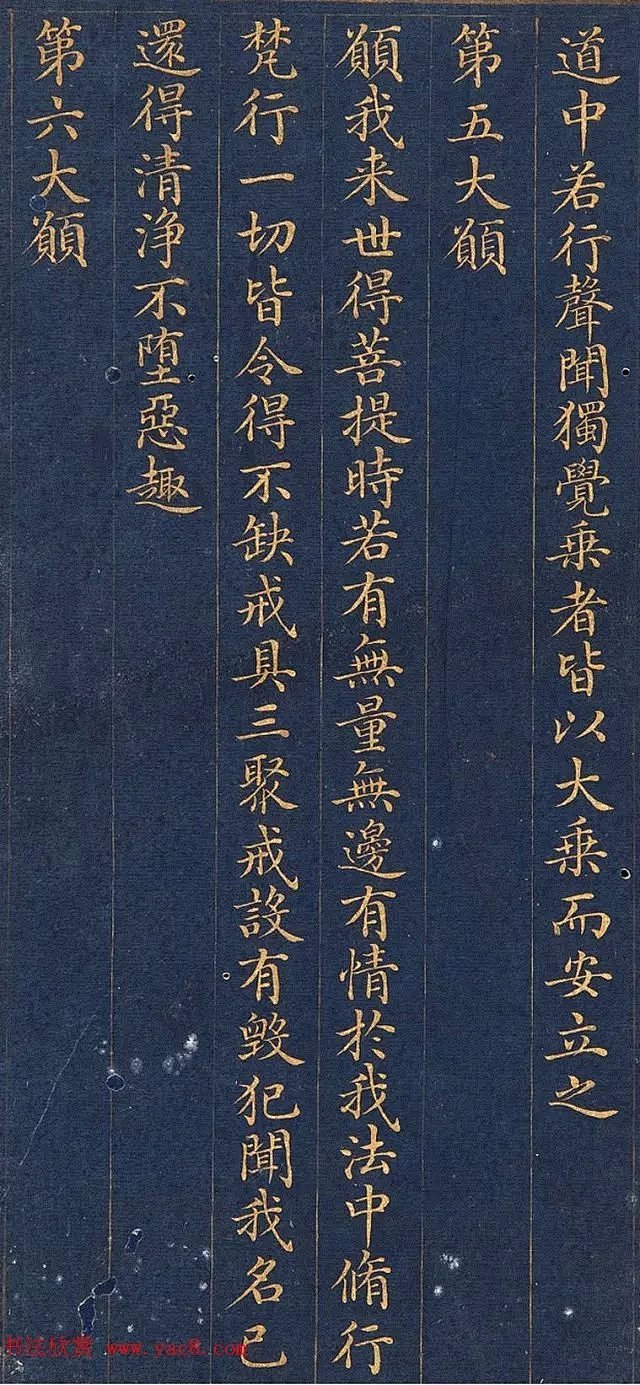 道中若行聲聞獨覺乘者皆以大乘而安立之
第五大願
願我来世得菩提時若有無量無邊有情於我法中脩行
梵行一切皆令得不缺戒具三聚戒設有毀犯聞我名已
還得清淨不墮惡趣
第六大願
书法欣赏 www.yac8.com